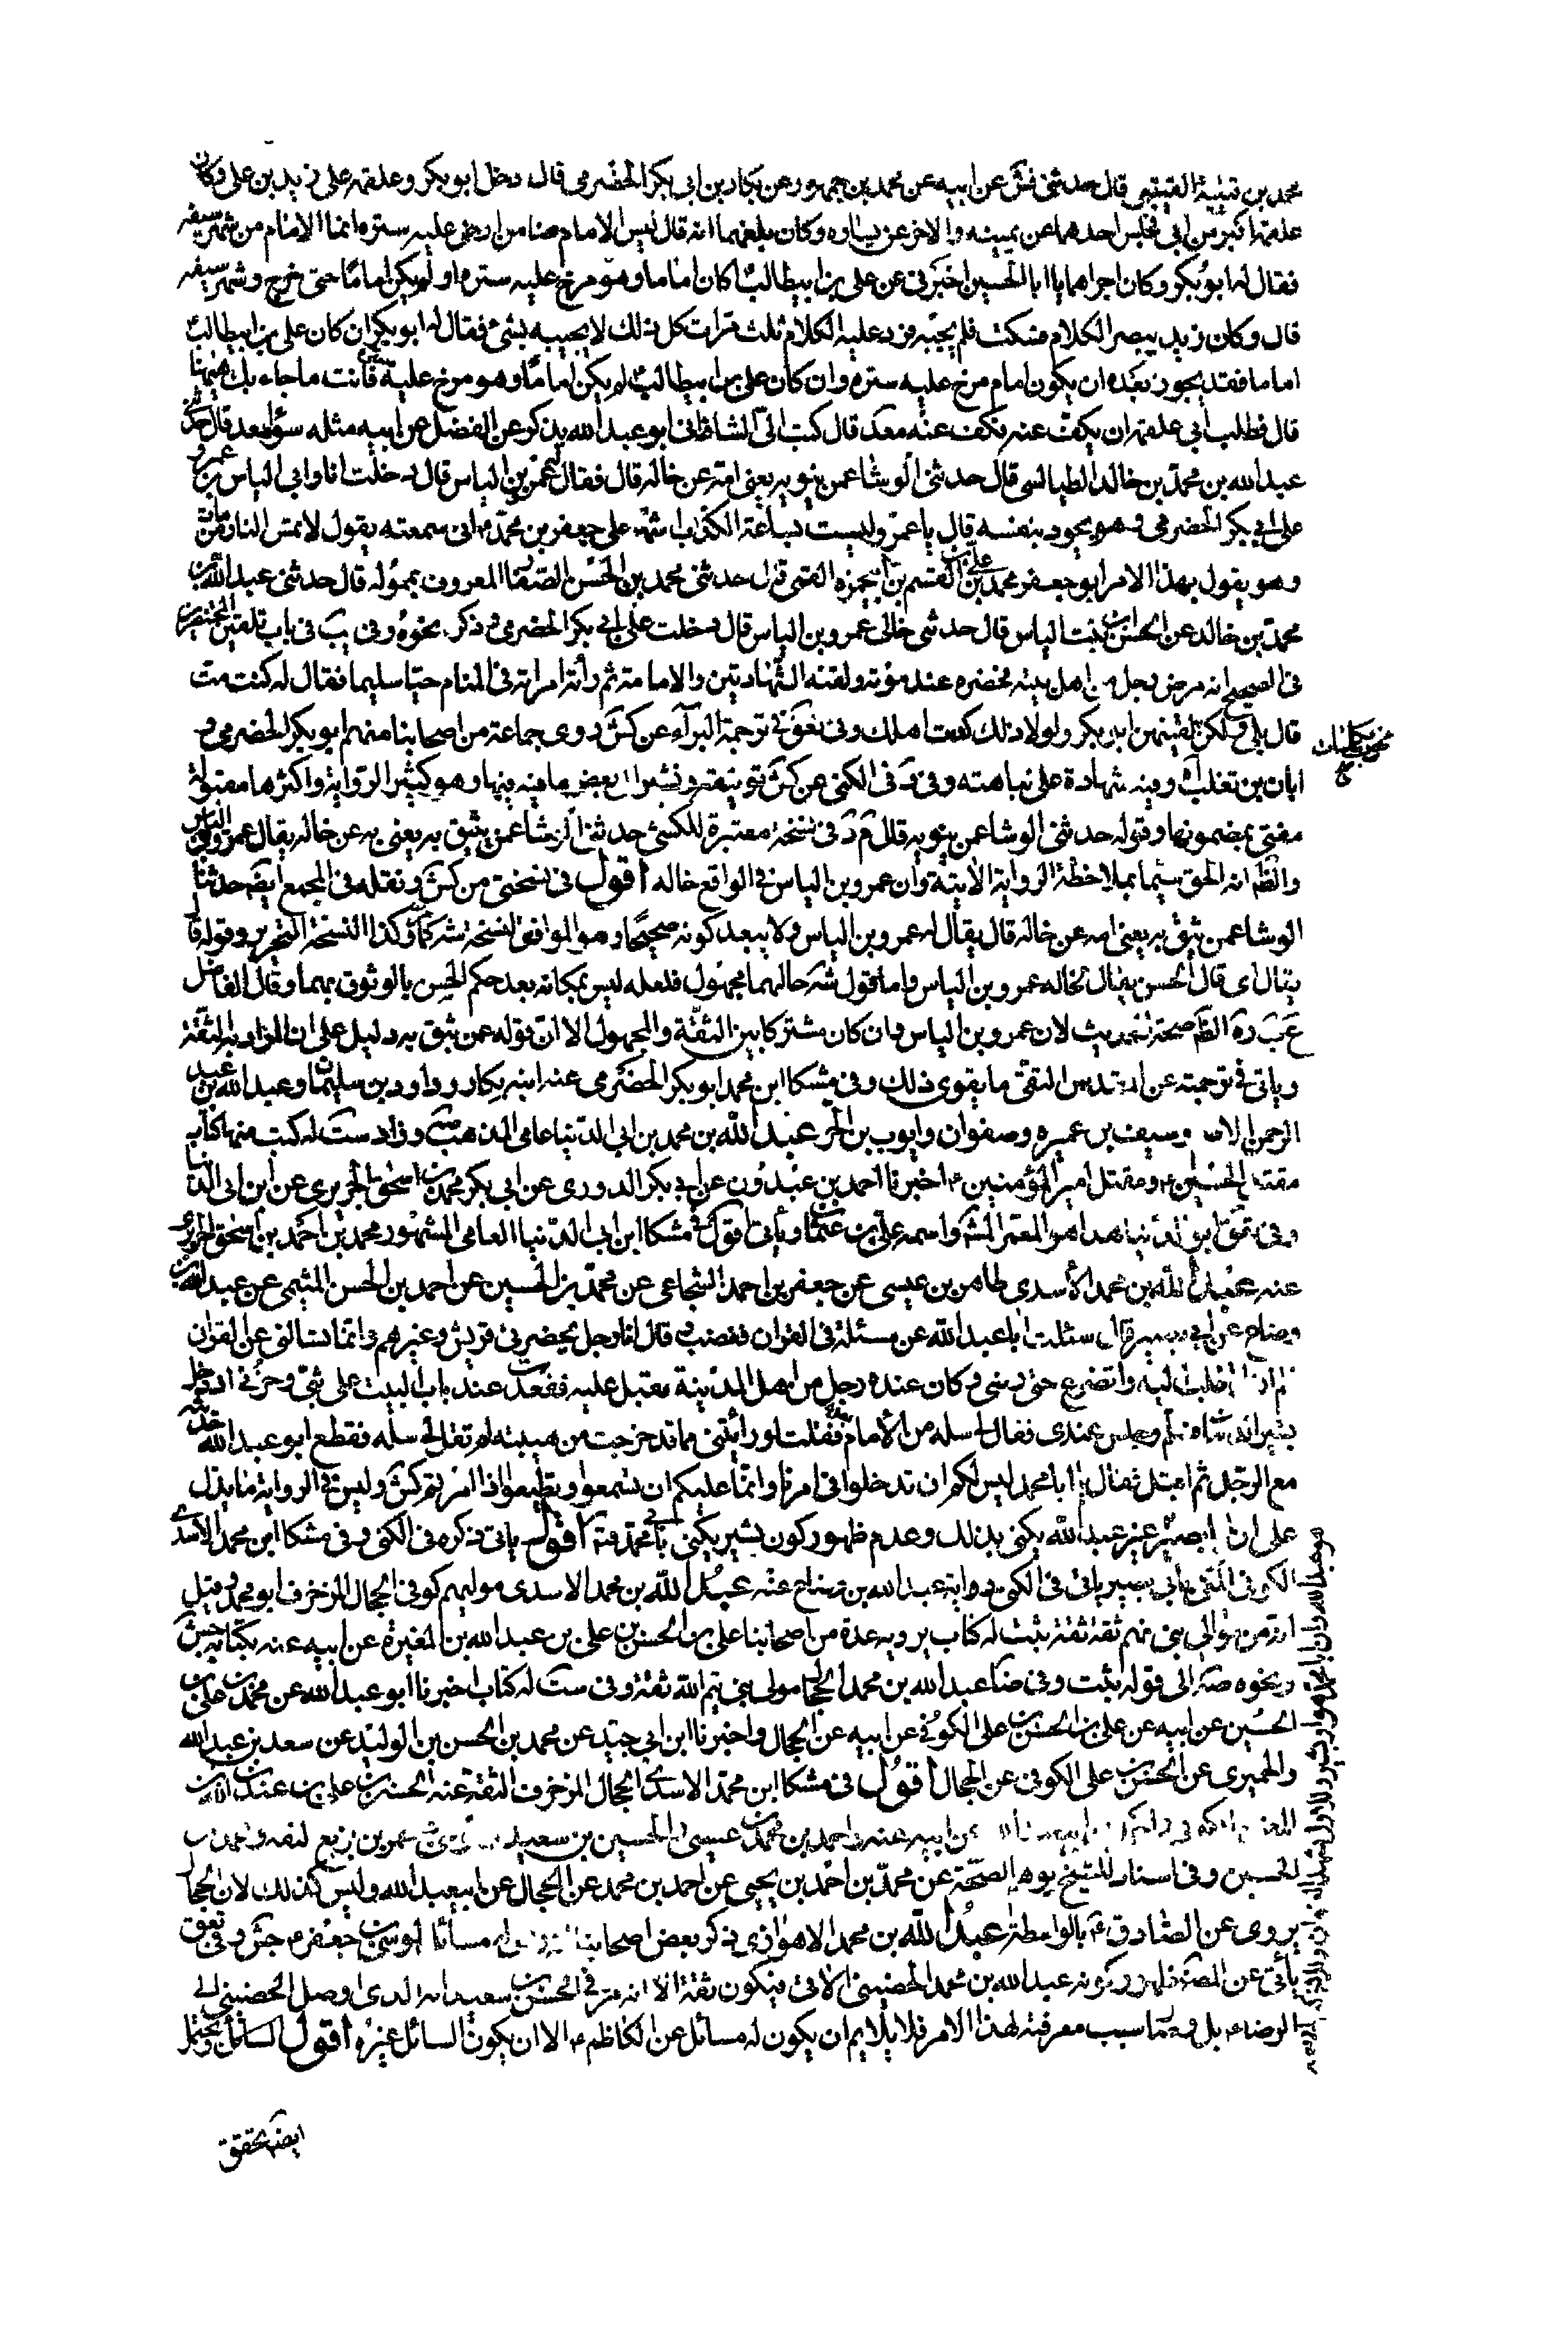 محمد بن قتيبة القتيبي قال حدثني فش عن ابيه عن محمد بن جمهور عن بكار بن ابي بكر الحضرمي قال دخل ابو بكر وعلقمة على زيد بن علي وكان
علقمة اكبر من ابي فجلس احدهما عن يمينه والاخر عن يساره وكان بلغهما انه قال ليس الامام منا من ارخى عليه ستره انما الامام من شهر سيفه
فقال له ابو بكر وكان اجراهما يا ابا الحسين اخبرني عن علي بن ابيطالب اكان اماما وهو مرخ عليه ستره او لم يكن اماما حتى خرج وشهر سيفه
قال وكان زيد يبصر الكلام فسكت فلم يجبه فرد عليه الكلام ثلث مرات كل ذلك لا يجيبه بشئ فقال له ابو بكر ان كان علي بن ابيطالب
اماما فقد يجوز بعده ان يكون امام مرخ عليه ستره وان كان علي بن ابيطالب لم يكن اماما وهو مرخ عليه ستره فانت ما جاء بك هيهنا
قال فطلب ابي علقمة ان يكف عنه فكف عنه معد قال كتب الي الشاذاني ابو عبد الله يذكر عن الفضل عن ابيه مثله سواء معد قال حدثني
عبد الله بن محمد بن خالد الطيالسي قال حدثني الوشا عمن يثق به يعني امه عن خاله قال فقال له عمرو بن الياس قال دخلت انا وابي الياس بن عمرو
على ابي بكر الحضرمي وهو يجود بنفسه قال يا عمرو ليست بساعة الكذب اشهد على جعفر بن محمد اني سمعته يقول لا تمس النار من مات
وهو يقول بهذا الامر ابو جعفر محمد بن علي بن القسم بن ابي حمزه القمي قال حدثني محمد بن الحسن الصفار المعروف بمموله قال حدثني عبد الله بن
محمد بن خالد عن الحسن ابن بنت الياس قال حدثني خالي عمرو بن الياس قال دخلت على ابي بكر الحضرمي وذكر نحوه وفي يب في باب تلقين المحتضرين
في الصحيح انه مرض رجل من اهل بيته فحضره عند موته ولقنه الشهادتين والامامة ثم رأته امرأته في المنام حيا سليما فقال له كنت مت
قال بلى ولكن لقنيهن ابو بكر ولولا ذلك كدت اهلك وفي تعق في ترجمة البراء عن كش روى جماعة من اصحابنا منهم ابو بكر الحضرمي و
ابان بن تغلب وفيه شهادة على نباهته وفي في الكنى عن كش توثيقه
مفتي بمضمونها وقوله حدثني الوشا عمن يثق به قال في نسخة معتبرة للكشي حدثني الوشا عمن يثق به يعني به عن خاله يقال عمرو بن الياس
والظ انه الحق سيما بملاحظة الرواية الاتية وان عمرو بن الياس في الواقع خاله اقول في نسختي من كش ونقله في المجمع ايض حدثنا
الوشا عمن يثق به يعني امه عن خاله قال يقال له عمرو بن الياس ولا يبعد كونه صحيحا وهو الموافق لنسخة وكذا النسخة التحرير وقوله قا
يقال اي قال الحسن يقال لخاله عمرو بن الياس واما قول شه حالهما مجهول فلعله ليس بمكانه بعد حكم الحسن بالوثوق بهما وقال الفاضل
الظ صحة الحديث لان عمرو بن الياس وان كان مشتركا بين الثقة والمجهول الا ان قوله عمن يثق به دليل على ان المراد به الثقة
وياتي في ترجمته عن التقي ما يقوي ذلك وفي مشكا ابن محمد ابو بكر الحضرمي عنه ابنه بكار وداود بن سليمان وعبد الله بن عبد
الرحمن وسيف بن عميره وصفوان وايوب بن الحر عبد الله بن محمد بن ابي الدنيا عامي المذهب وزاد ست له كتب منها كتاب
مقتل الحسين ومقتل امير المؤمنين اخبرنا احمد بن عبدون عن ابي بكر الدوري عن ابي بكر محمد بن اسحق الجريري عن ابن ابي الدنيا
وفي تعق ابو الدنيا هذا هو المعمر المش واسمه علي بن عثمان وياتي اقول في مشكا ابن ابي الدنيا العامي المشهور محمد بن احمد بن اسحق الحريري
عنه عبد الله بن محمد الاسدي طاهر بن عيسى عن جعفر بن احمد الشجاعي عن محمد بن الحسين عن احمد بن الحسن الميثمي عن عبد الله بن
وضاح عن ابي بصير قال سئلت ابا عبد الله عن مسئلة في القران فغضب وقال انا رجل يحضرني قريش وغيرهم وانما تسالني عن القران
فلم ازل اطلب اليه واتضرع حتى رضي وكان عنده رجل من اهل المدينة مقبل عليه فقعدت عند باب البيت على بثي وحزني اذ دخل
بشير الدهان فسلم وجلس عندي فقال لي سله من الامام بعده فقلت لو رأيتني مما قد خرجت من هيبته لم تقل لي سله فقطع ابو عبد الله حديثه
مع الرجل ثم اقبل فقال يا ابا محمد ليس لكم ان تدخلوا في امرنا وانما عليكم ان تسمعوا وتطيعوا اذا امرتم كش وليس في الرواية ما يدل
على ان ابا بصير غير عبد الله يكنى بذلك وعدم ظهور كون بشير يكنى بابي محمد فته اقول ياتي ذكره في الكنى وفي مشكا ابن محمد الاسدي
الكوفي المكنى بابي بصير ياتي في الكنى رواية عبد الله بن وضاح عنه عبد الله بن محمد الاسدي موليهم كوفي الحجال المزخرف ابو محمد وقيل
انه من موالي بني تيم ثقة ثقة ثبت له كتاب يرويه عدة من اصحابنا علي بن الحسن بن علي بن عبد الله بن المغيرة عن ابيه عنه بكتابه جش
ونحوه صه الى قوله ثبت وفي ضا عبد الله بن محمد الحجال مولى بني تيم الله ثقة وفي ست له كتاب اخبرنا ابو عبد الله عن محمد بن علي بن
الحسين عن ابيه عن علي بن الحسن بن علي الكوفي عن ابيه عن الحجال واخبرنا ابن ابي جيد عن محمد بن الحسن بن الوليد عن سعد بن عبد الله
والحميري عن الحسن بن علي الكوفي عن الحجال اقول في مشكا ابن محمد الاسدي الحجال المزخرف الثقة عنه الحسن بن علي بن عبد الله بن
عن ابيه عنه واحمد بن محمد بن عيسى والحسين بن سعيد
الحسين وفي اسناد للشيخ يوهم الصحة عن محمد بن احمد بن يحيى عن احمد بن محمد عن الحجال عن ابيعبد الله وليس كذلك لان الحجال
يروي عن الصادق بالواسطة عبد الله بن محمد الاهوازي ذكر بعض اصحابنا مسائل موسى بن جعفر جش وفي تعق
ياتي عن المصنف ظهور كونه عبد الله بن محمد الحضيني الاتي فيكون ثقة الا انه مر في الحسن بن سعيد انه الذي اوصل الحضيني الى
الرضا بل سبب معرفته لهذا الامر فلا يلايم ان يكون له مسائل عن الكاظم الا ان يكون السائل غيره اقول السائل
ايض تحقق